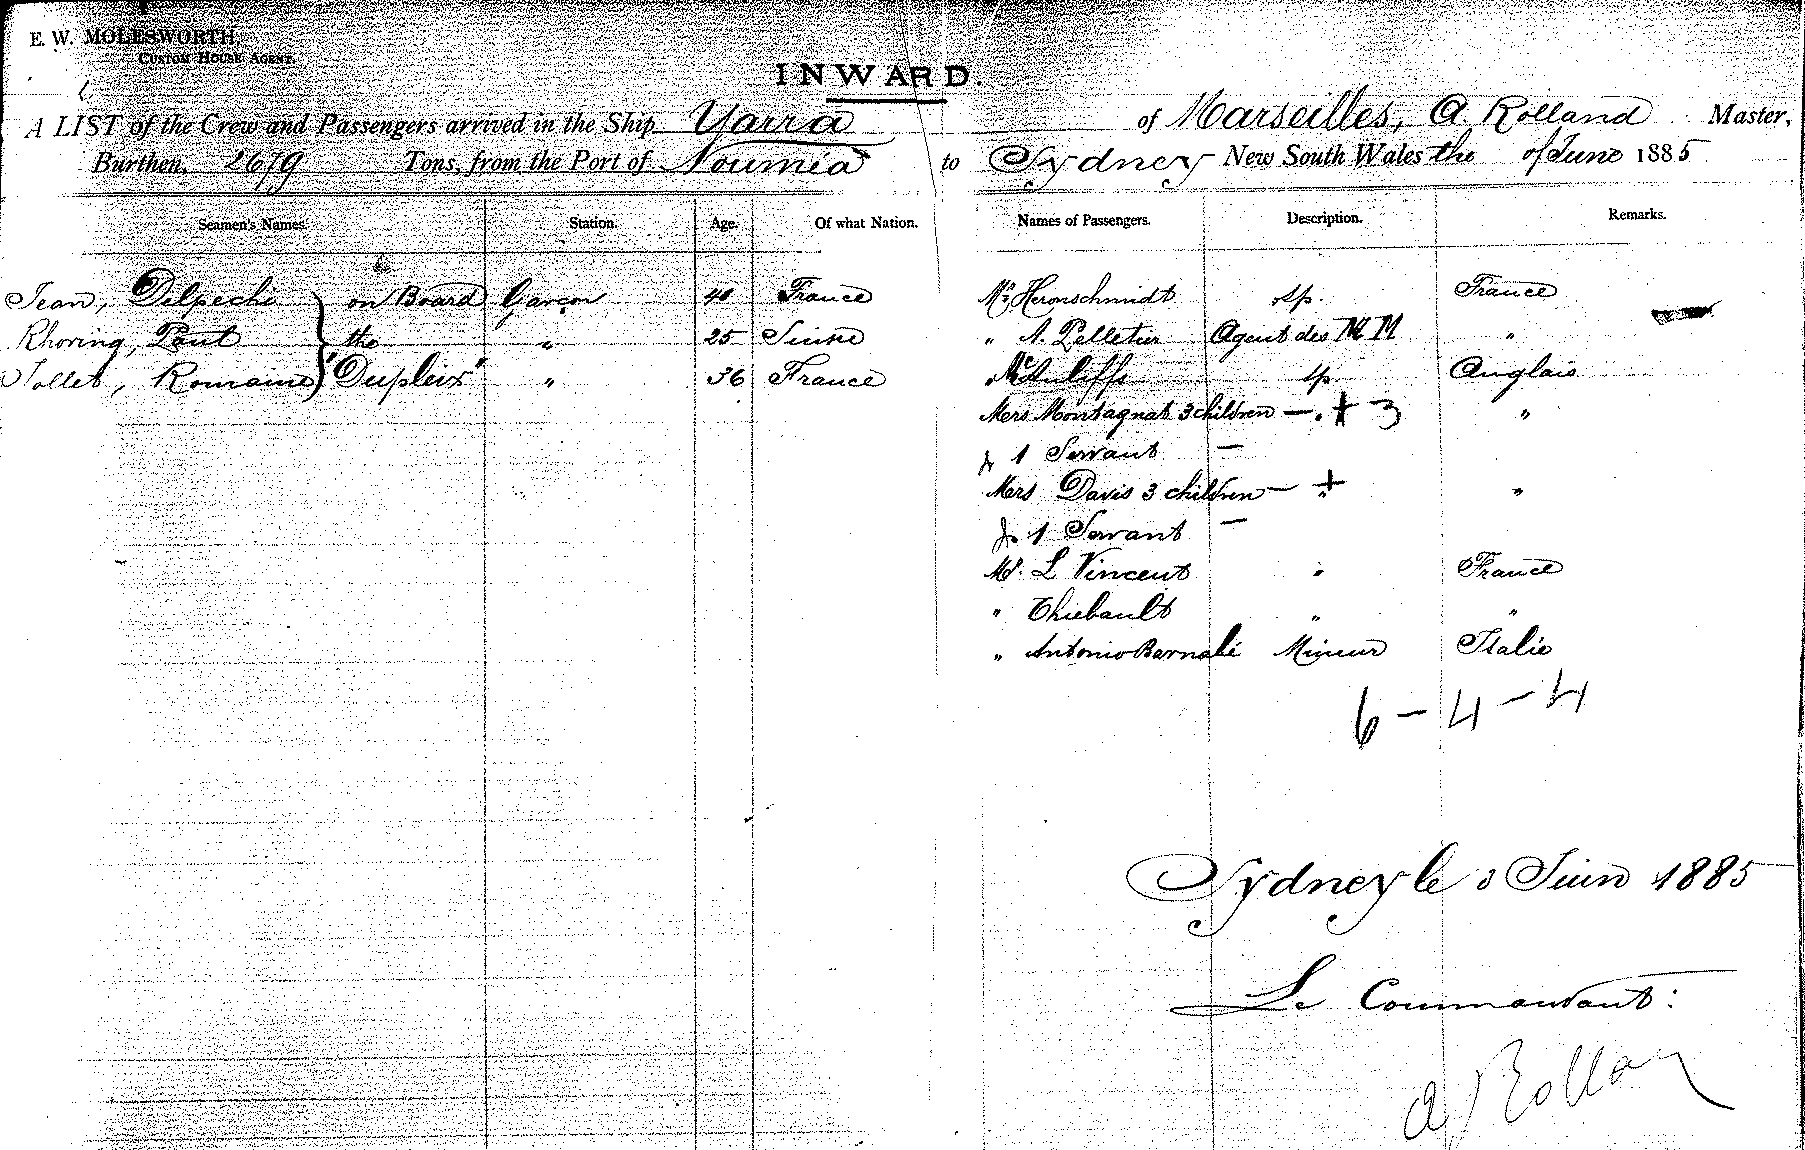 E. W. MOLESWORTH,
CUSTOM HOUSE AGENT.
INWARD
A LIST of the Crew and Passengers arrived in the Ship Yarra of Marseilles, A Rolland Master,
Burthen, 2679 Tons, from the Port of Noumea to Sydney New South Wales the of June 1885
Seamen's Names. Station. Age. Of what Nation. Names of Passengers. Description. Remarks.
Jean, Delpeche on Board Garçon 40 France Mr Heronschmidt sp. France
Rhoring, Paul the " 25 Suisse " A. Pelletier Agent des MM "
Jollet, Romaine "Dupleix" " 36 France " McAuliffe sp Anglais
Mers Montagnat 3 children — . + 3 "
& 1 Servant —
Mers Davis 3 children — + " "
& 1 Servant —
Mr. L Vincent " France
" Thiebault " "
" Antonio Barnabé Mineur Italie
6 – 4 – 4
Sydney le 3 Juin 1885
Le Commandant:
A Rolland